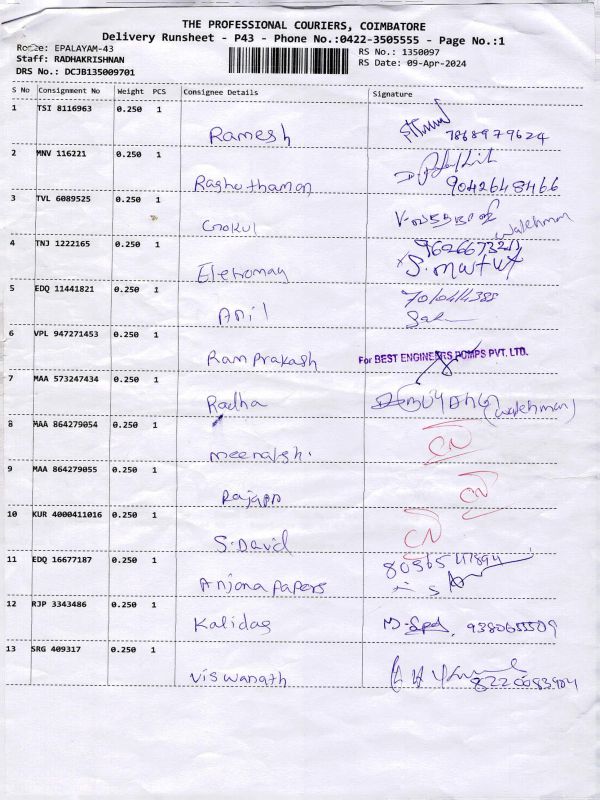 THE PROFESSIONAL COURIERS, COIMBATORE
Delivery Runsheet - P43 - Phone No.:0422-3505555 - Page No.:1
Route: EPALAYAM-43
Staff: RADHAKRISHNAN
DRS No.: DCJB135009701
RS No.: 1350097
RS Date: 09-Apr-2024
S No Consignment No Weight PCS Consignee Details Signature
1 TSI 8116963 0.250 1
Ramesh 7868979624
2 MNV 116221 0.250 1
Raghuthaman 9042648466
3 TVL 6089525 0.250 1
Gokul watchman
4 TNJ 1222165 0.250 1
5 EDQ 11441821 0.250 1
Anil
6 VPL 947271453 0.250 1
Ram prakash For BEST ENGINEERS PUMPS PVT. LTD.
7 MAA 573247434 0.250 1
Radha (watchman)
8 MAA 864279054 0.250 1
meenakshi. CN
9 MAA 864279055 0.250 1
Rajappa CN
10 KUR 4000411016 0.250 1
S. David CN
11 EDQ 16677187 0.250 1
Anjana papers
12 RJP 3343486 0.250 1
Kalidas 9380655509
13 SRG 409317 0.250 1
Viswanath 8220083904